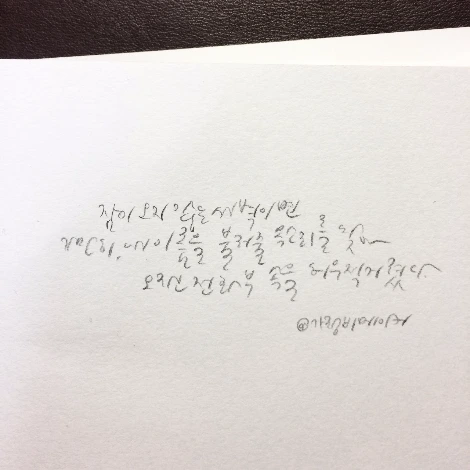 잠이 오지 않는 새벽이면
가만히 내 이름을 불러줄 목소리를 찾아
전화부 속을 허우적거렸다.
@가랑비메이커